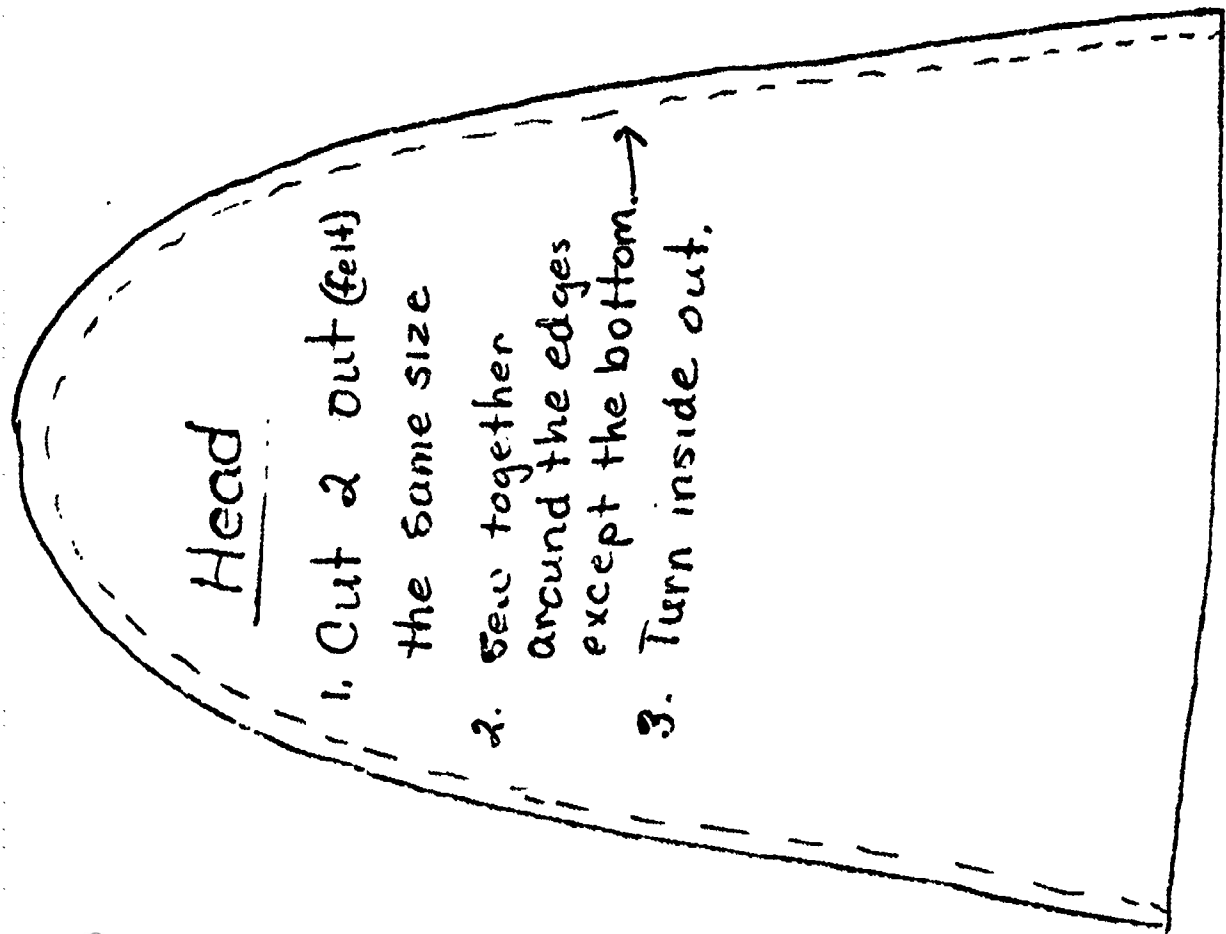 Head
1. Cut 2 out (felt)
the same size
2. Sew together
around the edges
except the bottom. →
3. Turn inside out.